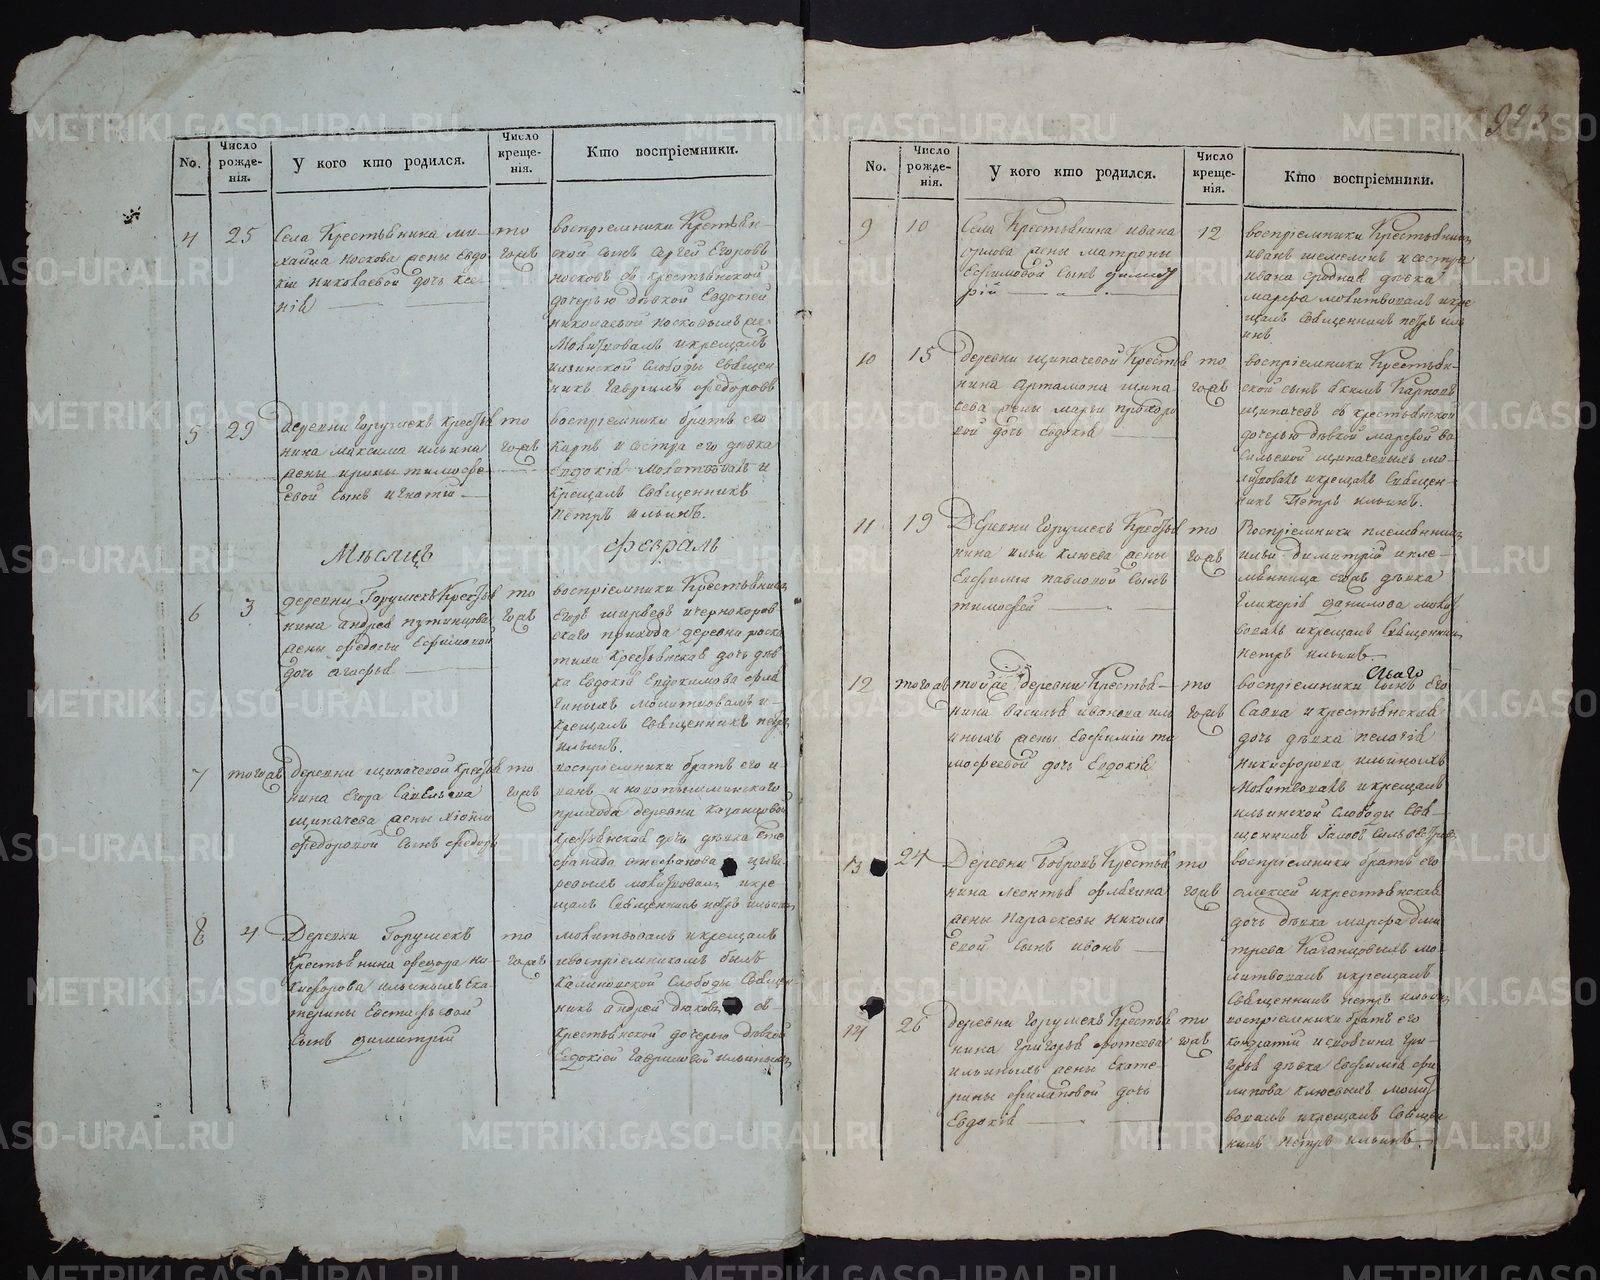 993
No.
Число рожденія.
У кого кто родился.
Число крещенія.
Кто воспріемники.
4
25
Села Крестьянина Ми-
хайла Носкова жены Евдо
кіи Николаевой дочь Ксе
нія
тогож
воспріемники Крестьян
ской сынъ Сергей Егоровъ
Носковъ съ крестьянской
дочерью девкой Евдокіей
Николаевой Носковыхъ же
Молитвовалъ и крещалъ
Слободы Священ
никъ Гавріилъ Федоровъ
5
29
Деревни Горушекъ Крестья
нина Максима Ильина
жены Ирины Тимофе
евой сынъ Игнатій
тогож
воспріемники братъ его
Карпъ и сестра его девка
Евдокія Молитвовалъ и
Крещалъ Священникъ
Петръ Ильинъ.
Месяцъ
Февраль
6
3
деревни Горушекъ Крестья
нина Андрея Путинцова
жены Федосьи Ефимовой
дочь Агафья
тогож
воспріемники Крестьянинъ
Егоръ и Чернокоров
скаго прихода деревни
Крестьянская дочь дев
ка Евдокія Евдокимова
Молитвовалъ и
крещалъ Священникъ Петръ
Ильинъ.
7
тогож
деревни Щипачевой Крестья
нина Егора Савельева
Щипачева жены Хіоніи
Федоровой сынъ Федоръ
тогож
воспріемники братъ его И-
ванъ и Новопышминскаго
прихода деревни Казанцовой
Крестьянская дочь девка Сте
фанида
молитвовалъ и кре
щалъ Священникъ Петръ Ильинъ
8
4
Деревни Горушекъ
Крестьянина Федора Ни
кифорова Ильиныхъ Ека
терины Евстафьевой
сынъ Димитрій
тогож
молитвовалъ и крещалъ
и воспріемникомъ былъ
Калиновской Слободы Священ
никъ Андрей съ
Крестьянской дочерью девкой
Евдокіей Гавриловой Ильиныхъ
No.
Число рожденія.
У кого кто родился.
Число крещенія.
Кто воспріемники.
9
10
Села Крестьянина Ивана
жены Матроны
Ефимовой сынъ Димит
рій
12
воспріемники Крестьянинъ
Иванъ Шемелинъ и сестра
Ивана сродная девка
Марфа молитвовалъ и кре
щалъ Священникъ Петръ Иль
инъ
10
15
Деревни Щипачевой Крестья
нина Артамона Щипа
чева жены Марьи Прохоро
вой дочь Евдокія
тогож
воспріемники Крестьян-
ской сынъ Екимъ Карповъ
Щипачевъ съ крестьянской
дочерью девкой Марфой Ва
сильевой Щипачевыхъ мо-
литвовалъ и крещалъ Священ-
никъ Петръ Ильинъ.
11
19
Деревни Горушекъ Крестья
нина Ильи Клюева жены
Евфиміи Павловой сынъ
Тимофей
тогож
Воспріемники племянникъ
Ильи Димитрій и пле-
мянница егожъ девка
Гликерія Данилова молит
вовалъ и крещалъ Священникъ
Петръ Ильинъ
12
тогож
той же деревни Крестья-
нина Василья Иванова Иль
иныхъ жены Евфиміи Ти
мофеевой дочь Евдокія
тогож
воспріемники сынъ его
Савва и крестьянская
дочь девка Пелагія
Никифорова Ильиныхъ
Молитвовалъ и крещалъ
Ильинской Слободы Свя-
щенникъ Іаковъ Сильвестровъ
13
24
Деревни Бобровъ Крестья
нина Леонтья Флягина
жены Параскевы Никола
евой сынъ Иванъ
тогож
воспріемники братъ его
Алексей и крестьянская
дочь девка Марфа Дми
трева Казанцовыхъ мо
литвовалъ и крещалъ
Священникъ Петръ Ильинъ
14
26
Деревни Горушекъ Крестья
нина Григорья Фотеева
Ильиныхъ жены Екате
рины Филаповой дочь
Евдокія
тогож
воспріемники братъ его
Кондратій и Григо
рья девка Евфимія Фи
липова Клюевыхъ молит
вовалъ и крещалъ Священ
никъ Петръ Ильинъ
METRIKI.GASO-URAL.RU